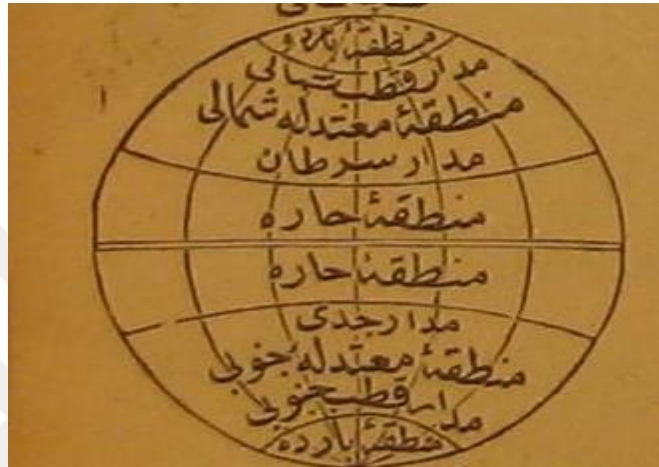 منطقهٔ باردہ
مدار قطب شمالی
منطقهٔ معتدله شمالی
مدار سرطان
منطقهٔ حاره
منطقهٔ حاره
مدار جدی
منطقهٔ معتدله جنوبی
مدار قطب جنوبی
منطقهٔ بارده